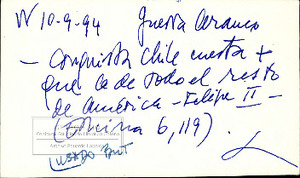 W 10-9-94 Guerra Arauco
- Conquista Chile cuesta +
que la de todo el resto
de América - Felipe II -
(Encina 6, 119)
USADO